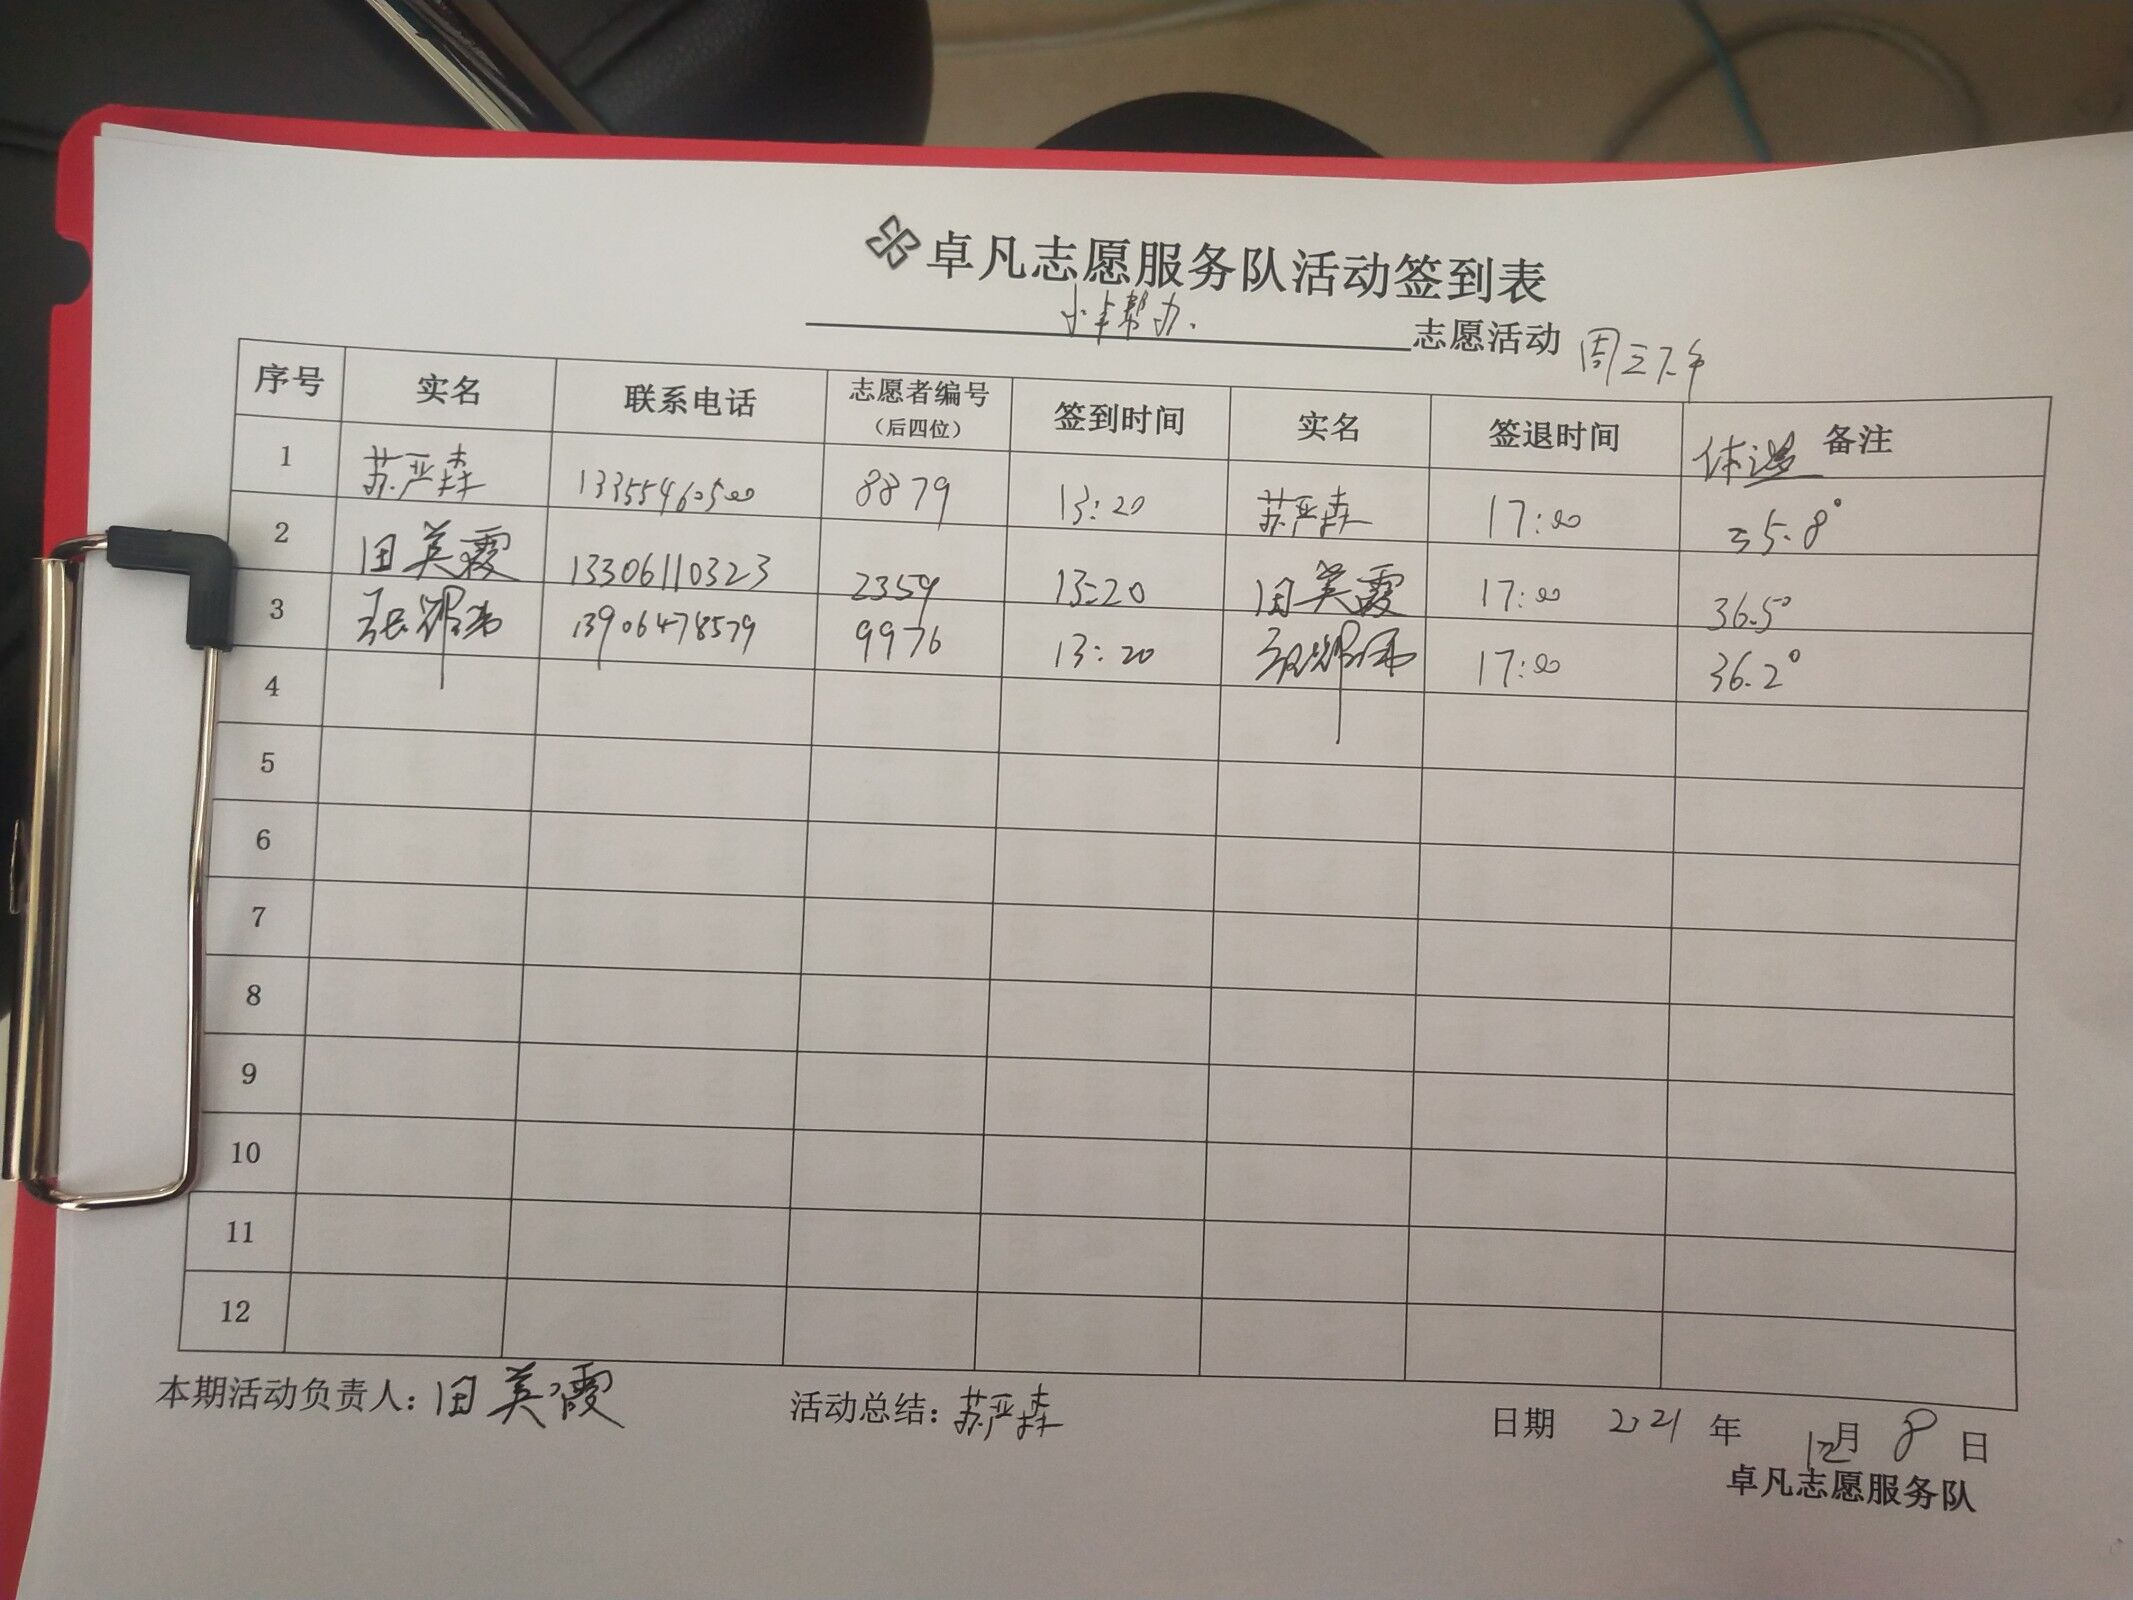 卓凡志愿服务队活动签到表
小卓帮办 志愿活动 周三下午
序号 实名 联系电话 志愿者编号（后四位） 签到时间 实名 签退时间 体温 备注
1 苏严森 13355460500 8879 13:20 苏严森 17:00 35.8°
2 田英霞 13306110323 2359 13:20 田英霞 17:00 36.5°
3 13906478579 9976 13:20 17:00 36.2°
4
5
6
7
8
9
10
11
12
本期活动负责人：田英霞 活动总结：苏严森 日期 2021 年 12月 8 日
卓凡志愿服务队